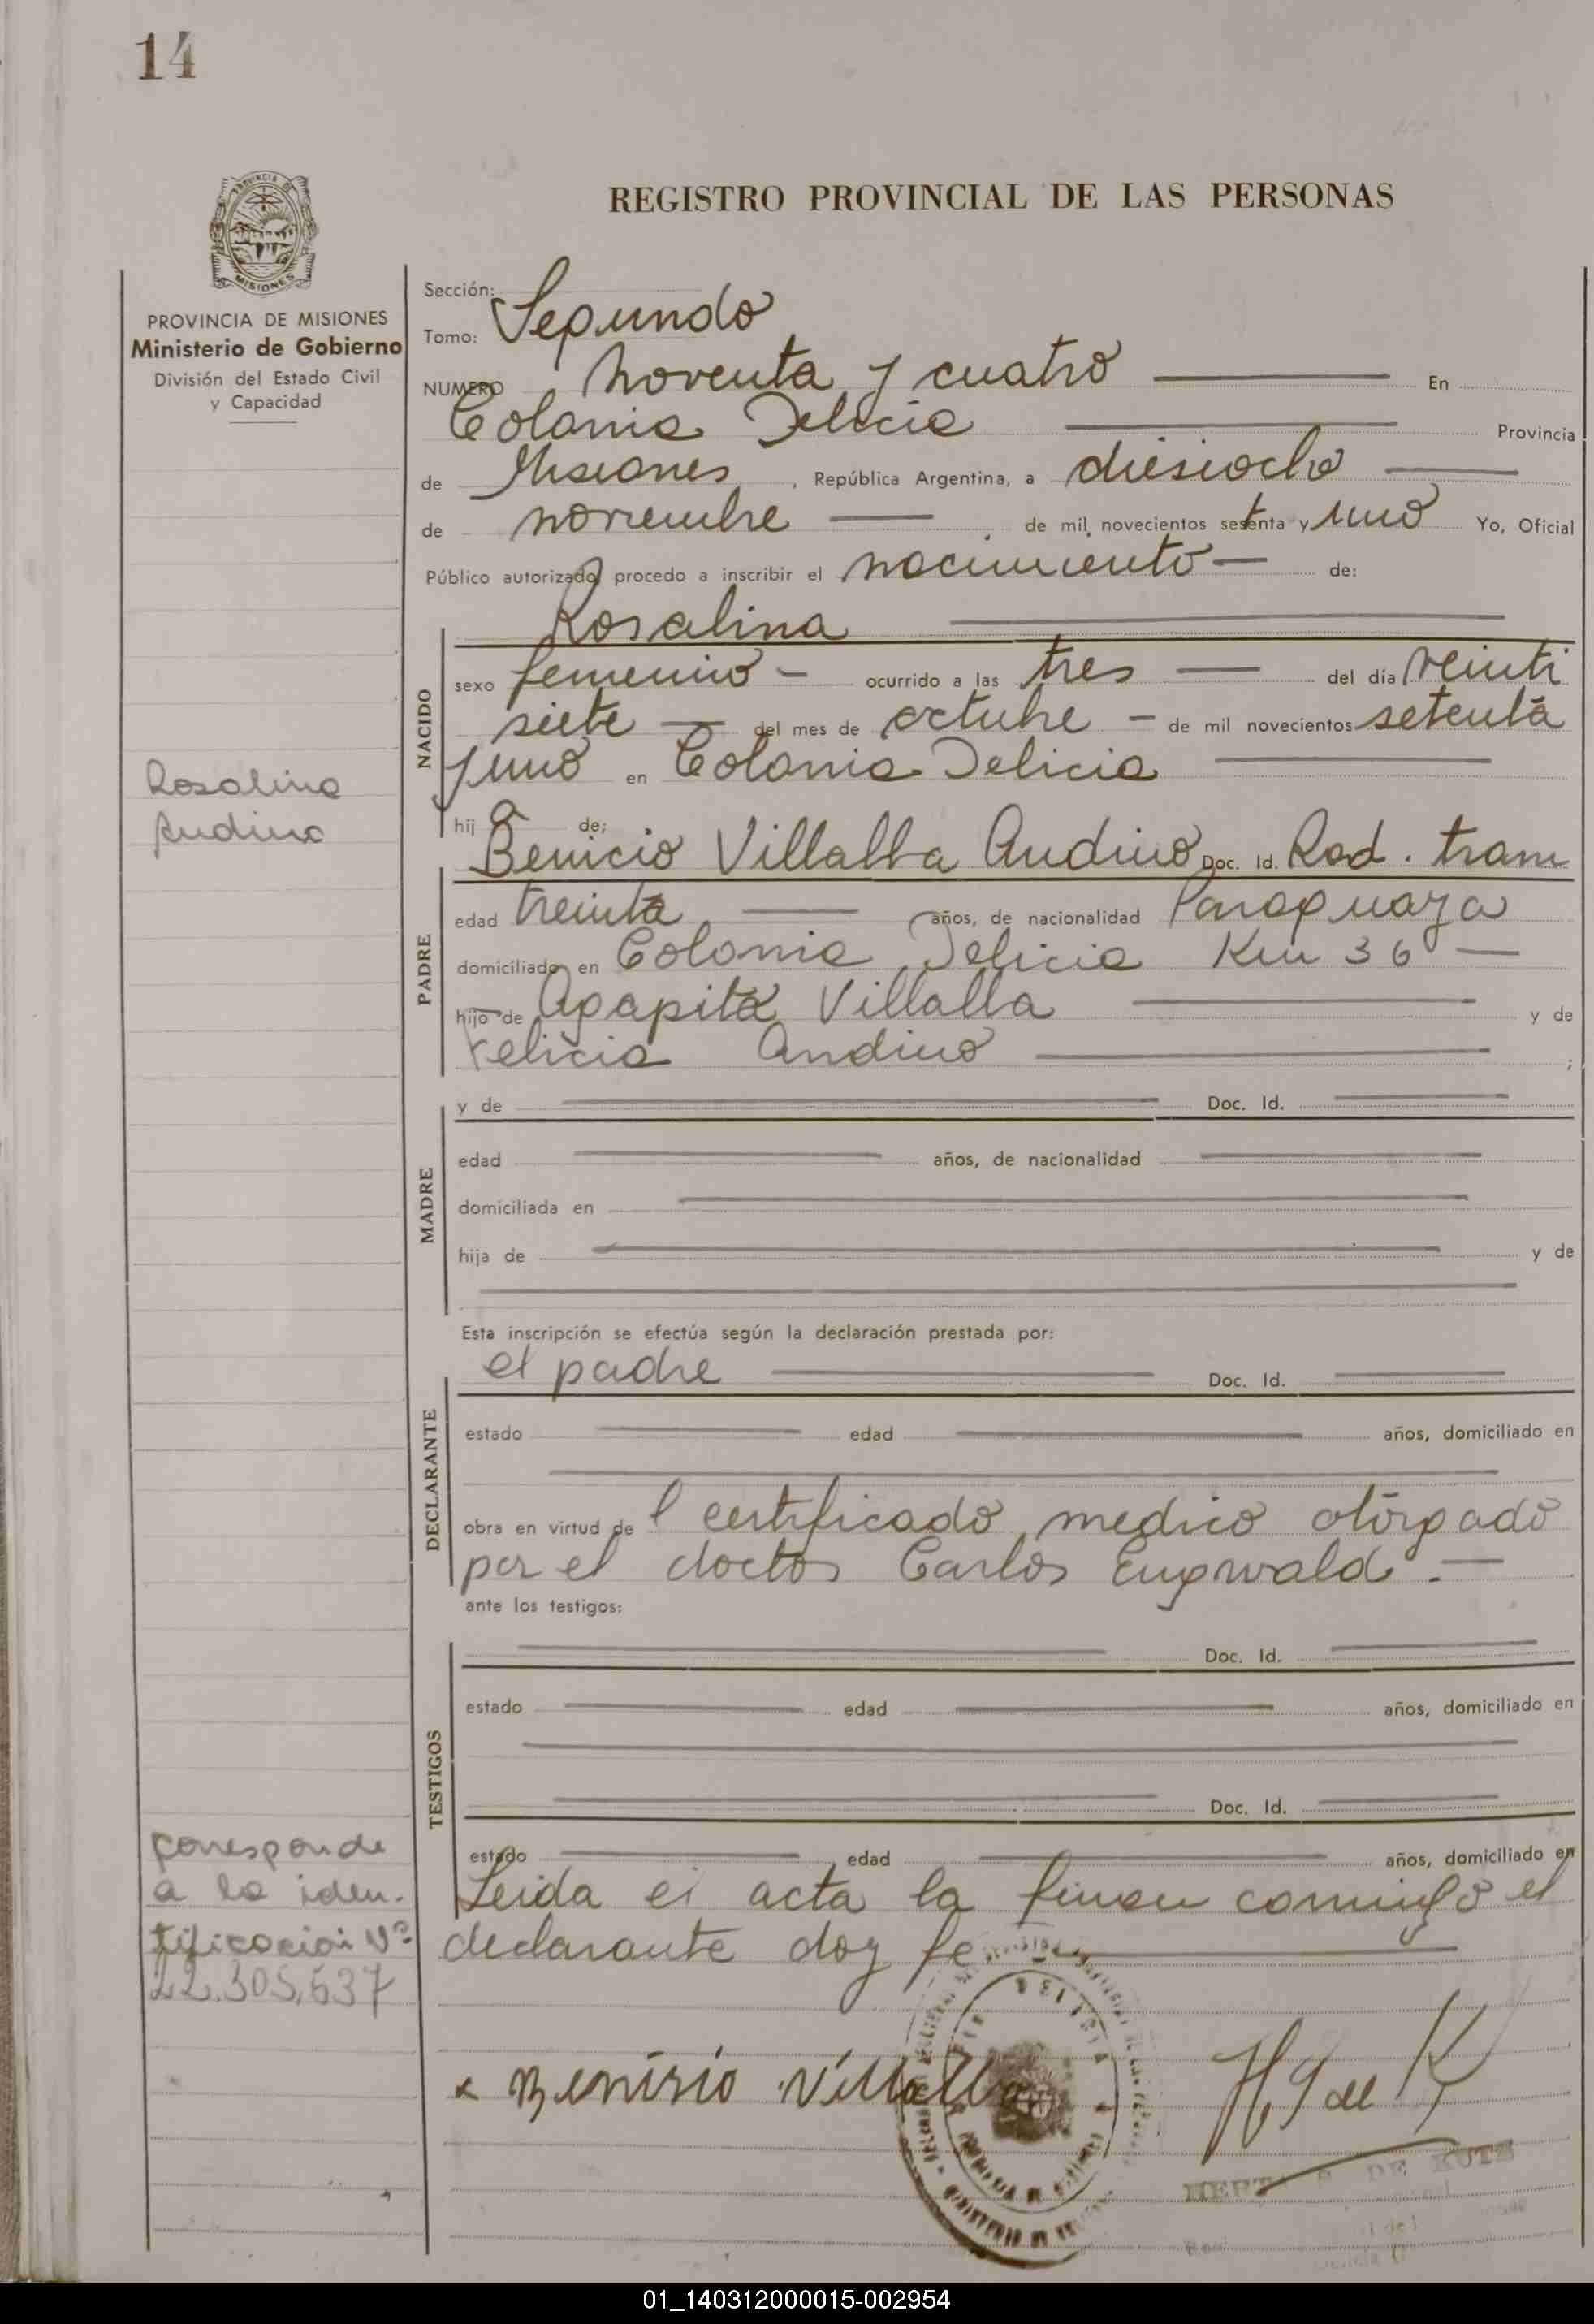 14
REGISTRO PROVINCIAL DE LAS PERSONAS
PROVINCIA DE
MISIONES
PROVINCIA DE MISIONES
Ministerio de Gobierno
División del Estado Civil
y Capacidad
Sección:
Tomo: Segundo
NUMERO noventa y cuatro En
Colonia Delicia Provincia
de Misiones, República Argentina, a diesiocho
de noviembre de mil novecientos setenta y uno Yo, Oficial
Público autorizado procedo a inscribir el nacimiento de:
Rosalina
NACIDO
sexo femenino ocurrido a las tres del día veinti
siete del mes de octubre de mil novecientos setenta
y uno en Colonia Delicia
Rosalina
Andino
hija de:
Benicio Villalba Andino Doc. Id. Rad. tram
PADRE
edad treinta años, de nacionalidad Paraguaya
domiciliado en Colonia Delicia Km 36
hijo de Agapita Villalba y de
Felicia Andino ;
MADRE
y de Doc. Id.
edad años, de nacionalidad
domiciliada en
hija de y de
Esta inscripción se efectúa según la declaración prestada por:
el padre Doc. Id.
DECLARANTE
estado edad años, domiciliado en
obra en virtud de l certificado medico otorgado
por el doctor Carlos Engwald.
ante los testigos:
TESTIGOS
Doc. Id.
estado edad años, domiciliado en
Doc. Id.
estado edad años, domiciliado en
Leida el acta la firman conmigo el
declarante doy fe
Corresponde
a la iden-
tificacion Nº
22.305.637
x Benisio Villalba
DELICIA
DE KUTZ
01_140312000015-002954